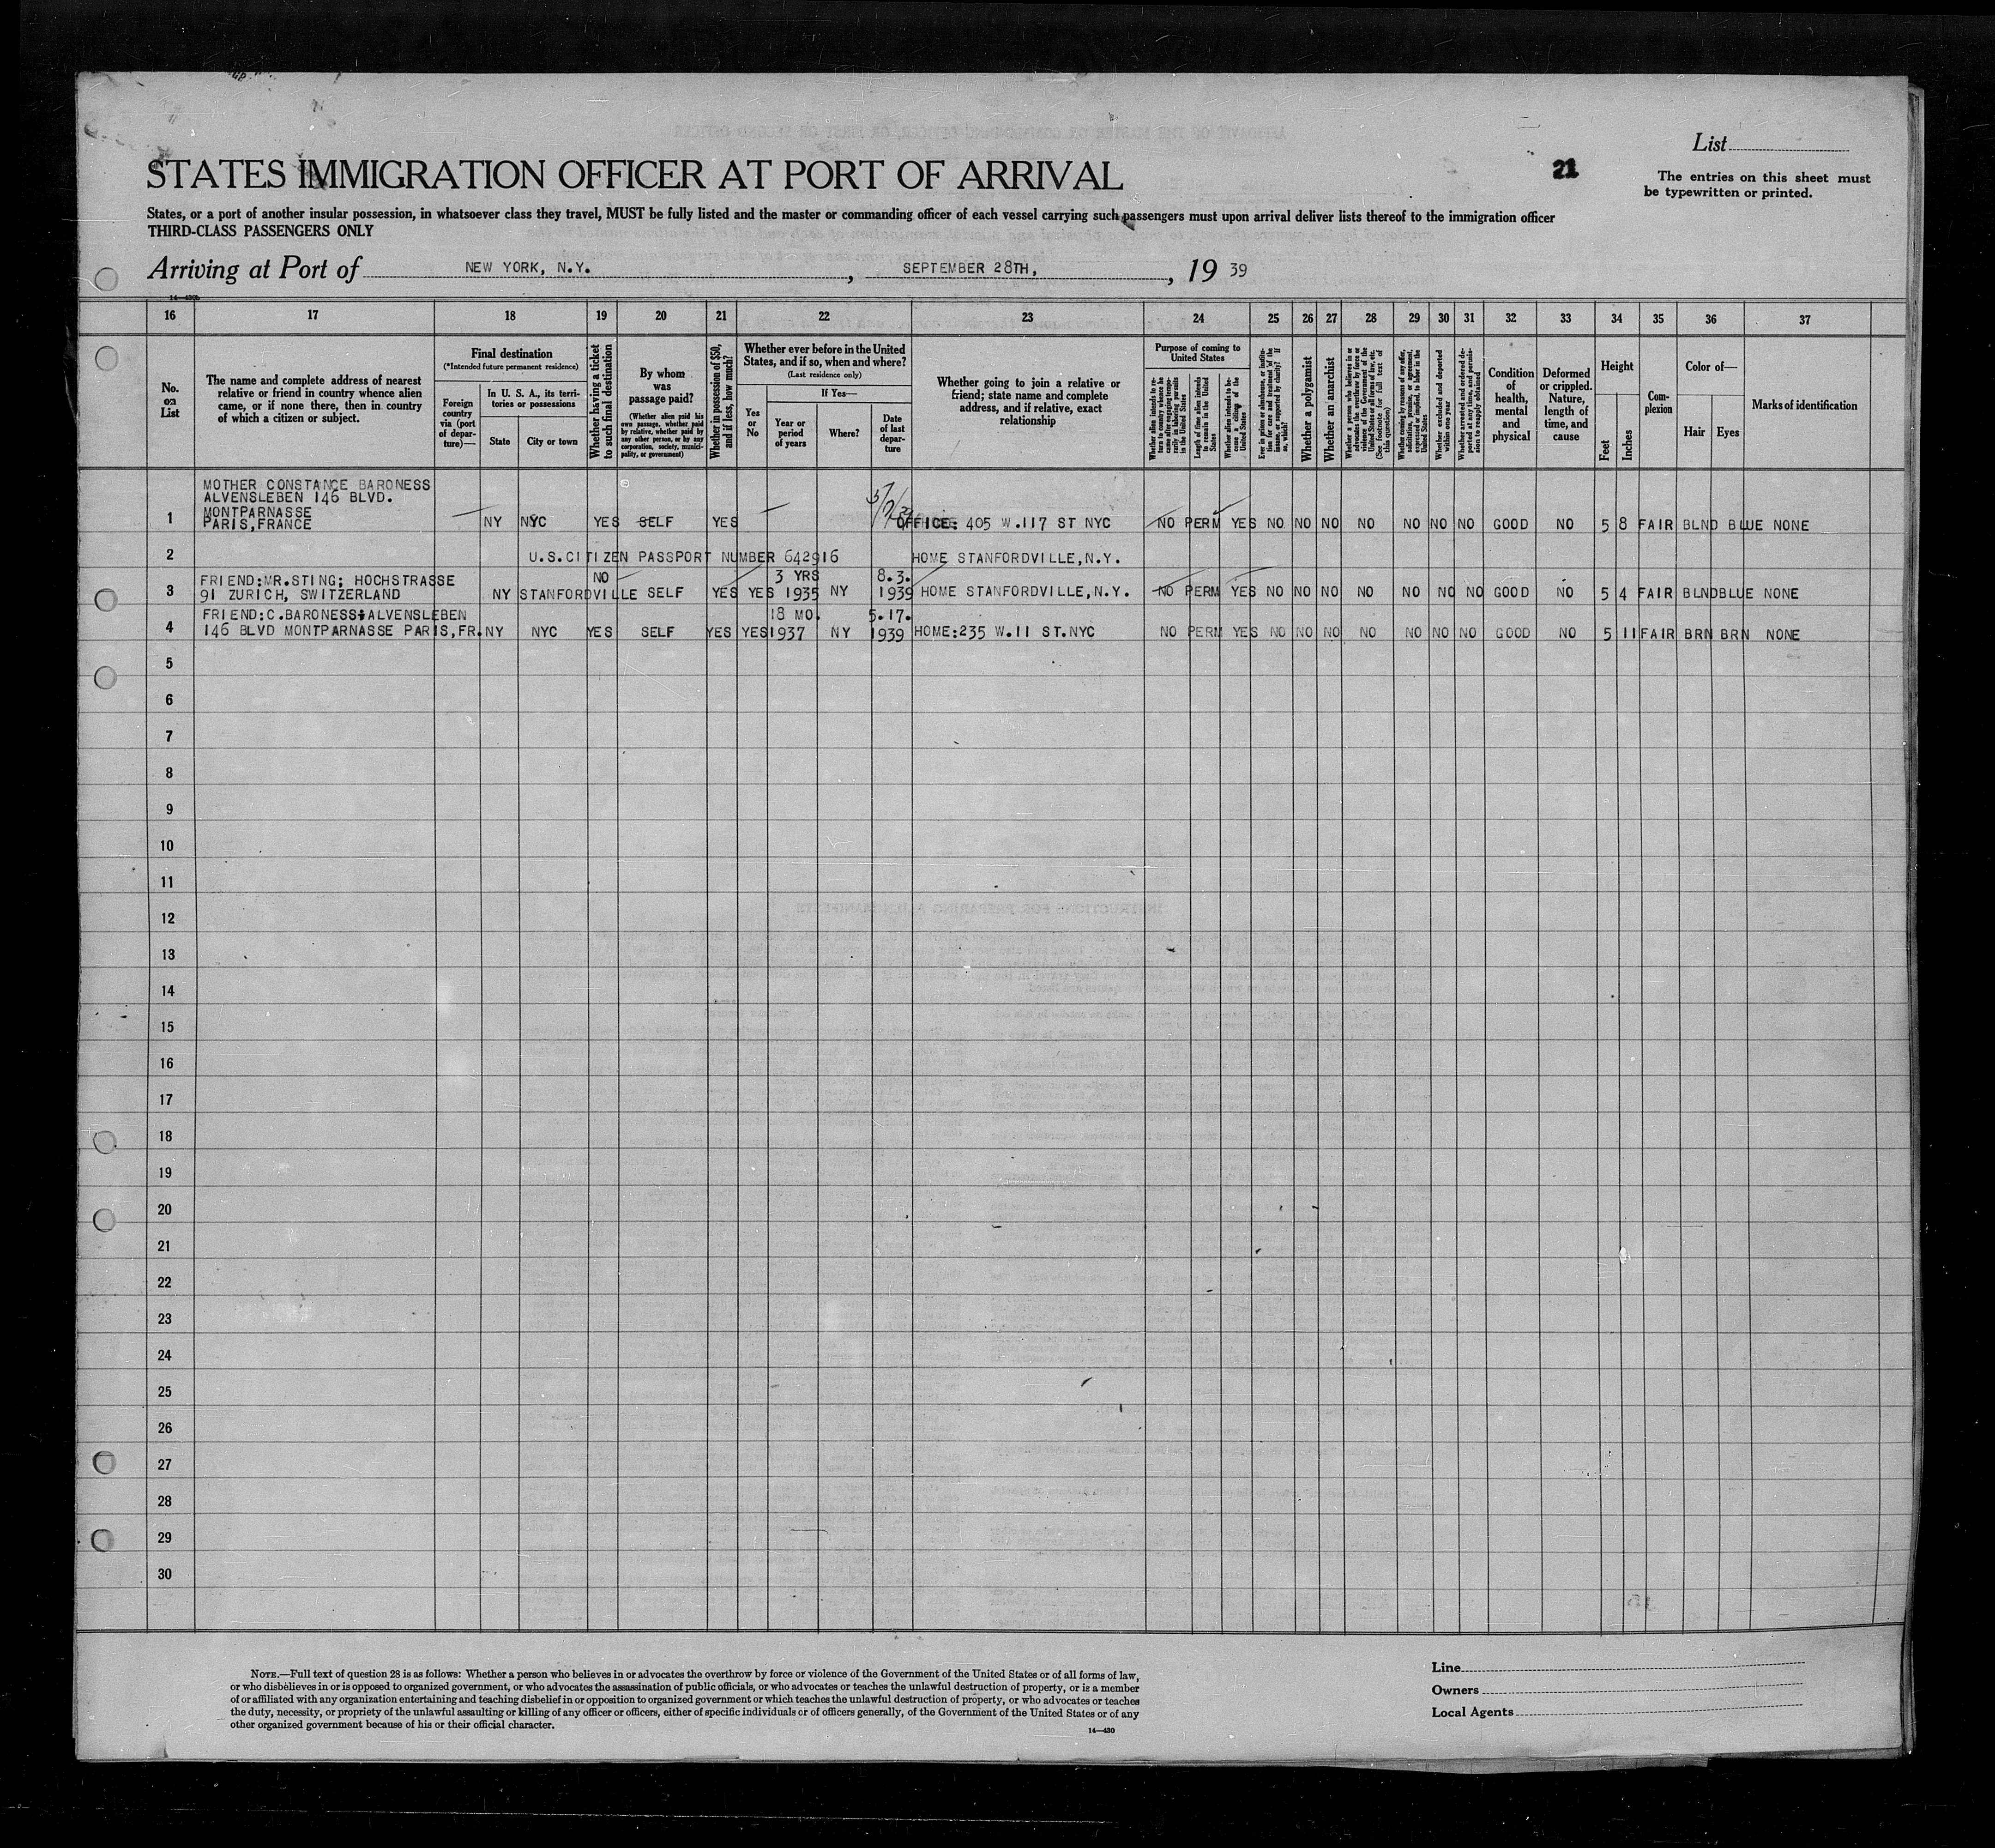 STATES IMMIGRATION OFFICER AT PORT OF ARRIVAL
21
List
The entries on this sheet must
be typewritten or printed.
States, or a port of another insular possession, in whatsoever class they travel, MUST be fully listed and the master or commanding officer of each vessel carrying such passengers must upon arrival deliver lists thereof to the immigration officer
THIRD-CLASS PASSENGERS ONLY
Arriving at Port of NEW YORK, N.Y. , SEPTEMBER 28TH, , 19 39
16 17 18 19 20 21 22 23 24 25 26 27 28 29 30 31 32 33 34 35 36 37
No. on List
The name and complete address of nearest
relative or friend in country whence alien
came, or if none there, then in country
of which a citizen or subject.
Final destination
(*Intended future permanent residence)
Foreign
country
via (port
of depar-
ture)—
In U. S. A., its terri-
tories or possessions
State
City or town
Whether having a ticket
to such final destination
By whom
was
passage paid?
(Whether alien paid his
own passage, whether paid
by relative, whether paid by
any other person, or by any
corporation, society, munici-
pality, or government)
Whether in possession of $50,
and if less, how much?
Whether ever before in the United
States, and if so, when and where?
(Last residence only)
Yes
or
No
If Yes—
Year or
period
of years
Where?
Date
of last
depar-
ture
Whether going to join a relative or
friend; state name and complete
address, and if relative, exact
relationship
Purpose of coming to
United States
Whether alien intends to re-
turn to country whence he
came after engaging tempo-
rarily in laboring pursuits
in the United States
Length of time alien intends
to remain in the United
States
Whether alien intends to be-
come a citizen of the
United States
Ever in prison or almshouse, or institu-
tion for care and treatment of the
insane, or supported by charity? If
so, which?
Whether a polygamist
Whether an anarchist
Whether a person who believes in or
advocates the overthrow by force or
violence of the Government of the
United States or all forms of law, etc.
(See footnote for full text of
this question)
Whether coming by reason of any offer,
solicitation, promise, or agreement,
expressed or implied, to labor in the
United States
Whether excluded and deported
within one year
Whether arrested and ordered de-
ported at any time, and permis-
sion to reapply obtained
Condition
of
health,
mental
and
physical
Deformed
or crippled.
Nature,
length of
time, and
cause
Height
Feet
Inches
Com-
plexion
Color of—
Hair
Eyes
Marks of identification
MOTHER CONSTANCE BARONESS
ALVENSLEBEN 146 BLVD.
MONTPARNASSE
1 PARIS, FRANCE NY NYC YES SELF YES OFFICE: 405 W.117 ST NYC NO PERM YES NO NO NO NO NO NO NO GOOD NO 5 8 FAIR BLND BLUE NONE
2 U.S.CITIZEN PASSPORT NUMBER 642916 HOME STANFORDVILLE,N.Y.
FRIEND:MR.STING; HOCHSTRASSE NO 3 YRS 8.3.
3 91 ZURICH, SWITZERLAND NY STANFORDVILLE SELF YES YES 1935 NY 1939 HOME STANFORDVILLE,N.Y. NO PERM YES NO NO NO NO NO NO NO GOOD NO 5 4 FAIR BLND BLUE NONE
FRIEND:C.BARONESS ALVENSLEBEN 18 MO. 5.17.
4 146 BLVD MONTPARNASSE PARIS,FR. NY NYC YES SELF YES YES 1937 NY 1939 HOME:235 W.11 ST.NYC NO PERM YES NO NO NO NO NO NO NO GOOD NO 5 11 FAIR BRN BRN NONE
5
6
7
8
9
10
11
12
13
14
15
16
17
18
19
20
21
22
23
24
25
26
27
28
29
30
NOTE.—Full text of question 28 is as follows: Whether a person who believes in or advocates the overthrow by force or violence of the Government of the United States or of all forms of law,
or who disbelieves in or is opposed to organized government, or who advocates the assassination of public officials, or who advocates or teaches the unlawful destruction of property, or is a member
of or affiliated with any organization entertaining and teaching disbelief in or opposition to organized government or which teaches the unlawful destruction of property, or who advocates or teaches
the duty, necessity, or propriety of the unlawful assaulting or killing of any officer or officers, either of specific individuals or of officers generally, of the Government of the United States or of any
other organized government because of his or their official character.
14—430
Line
Owners
Local Agents